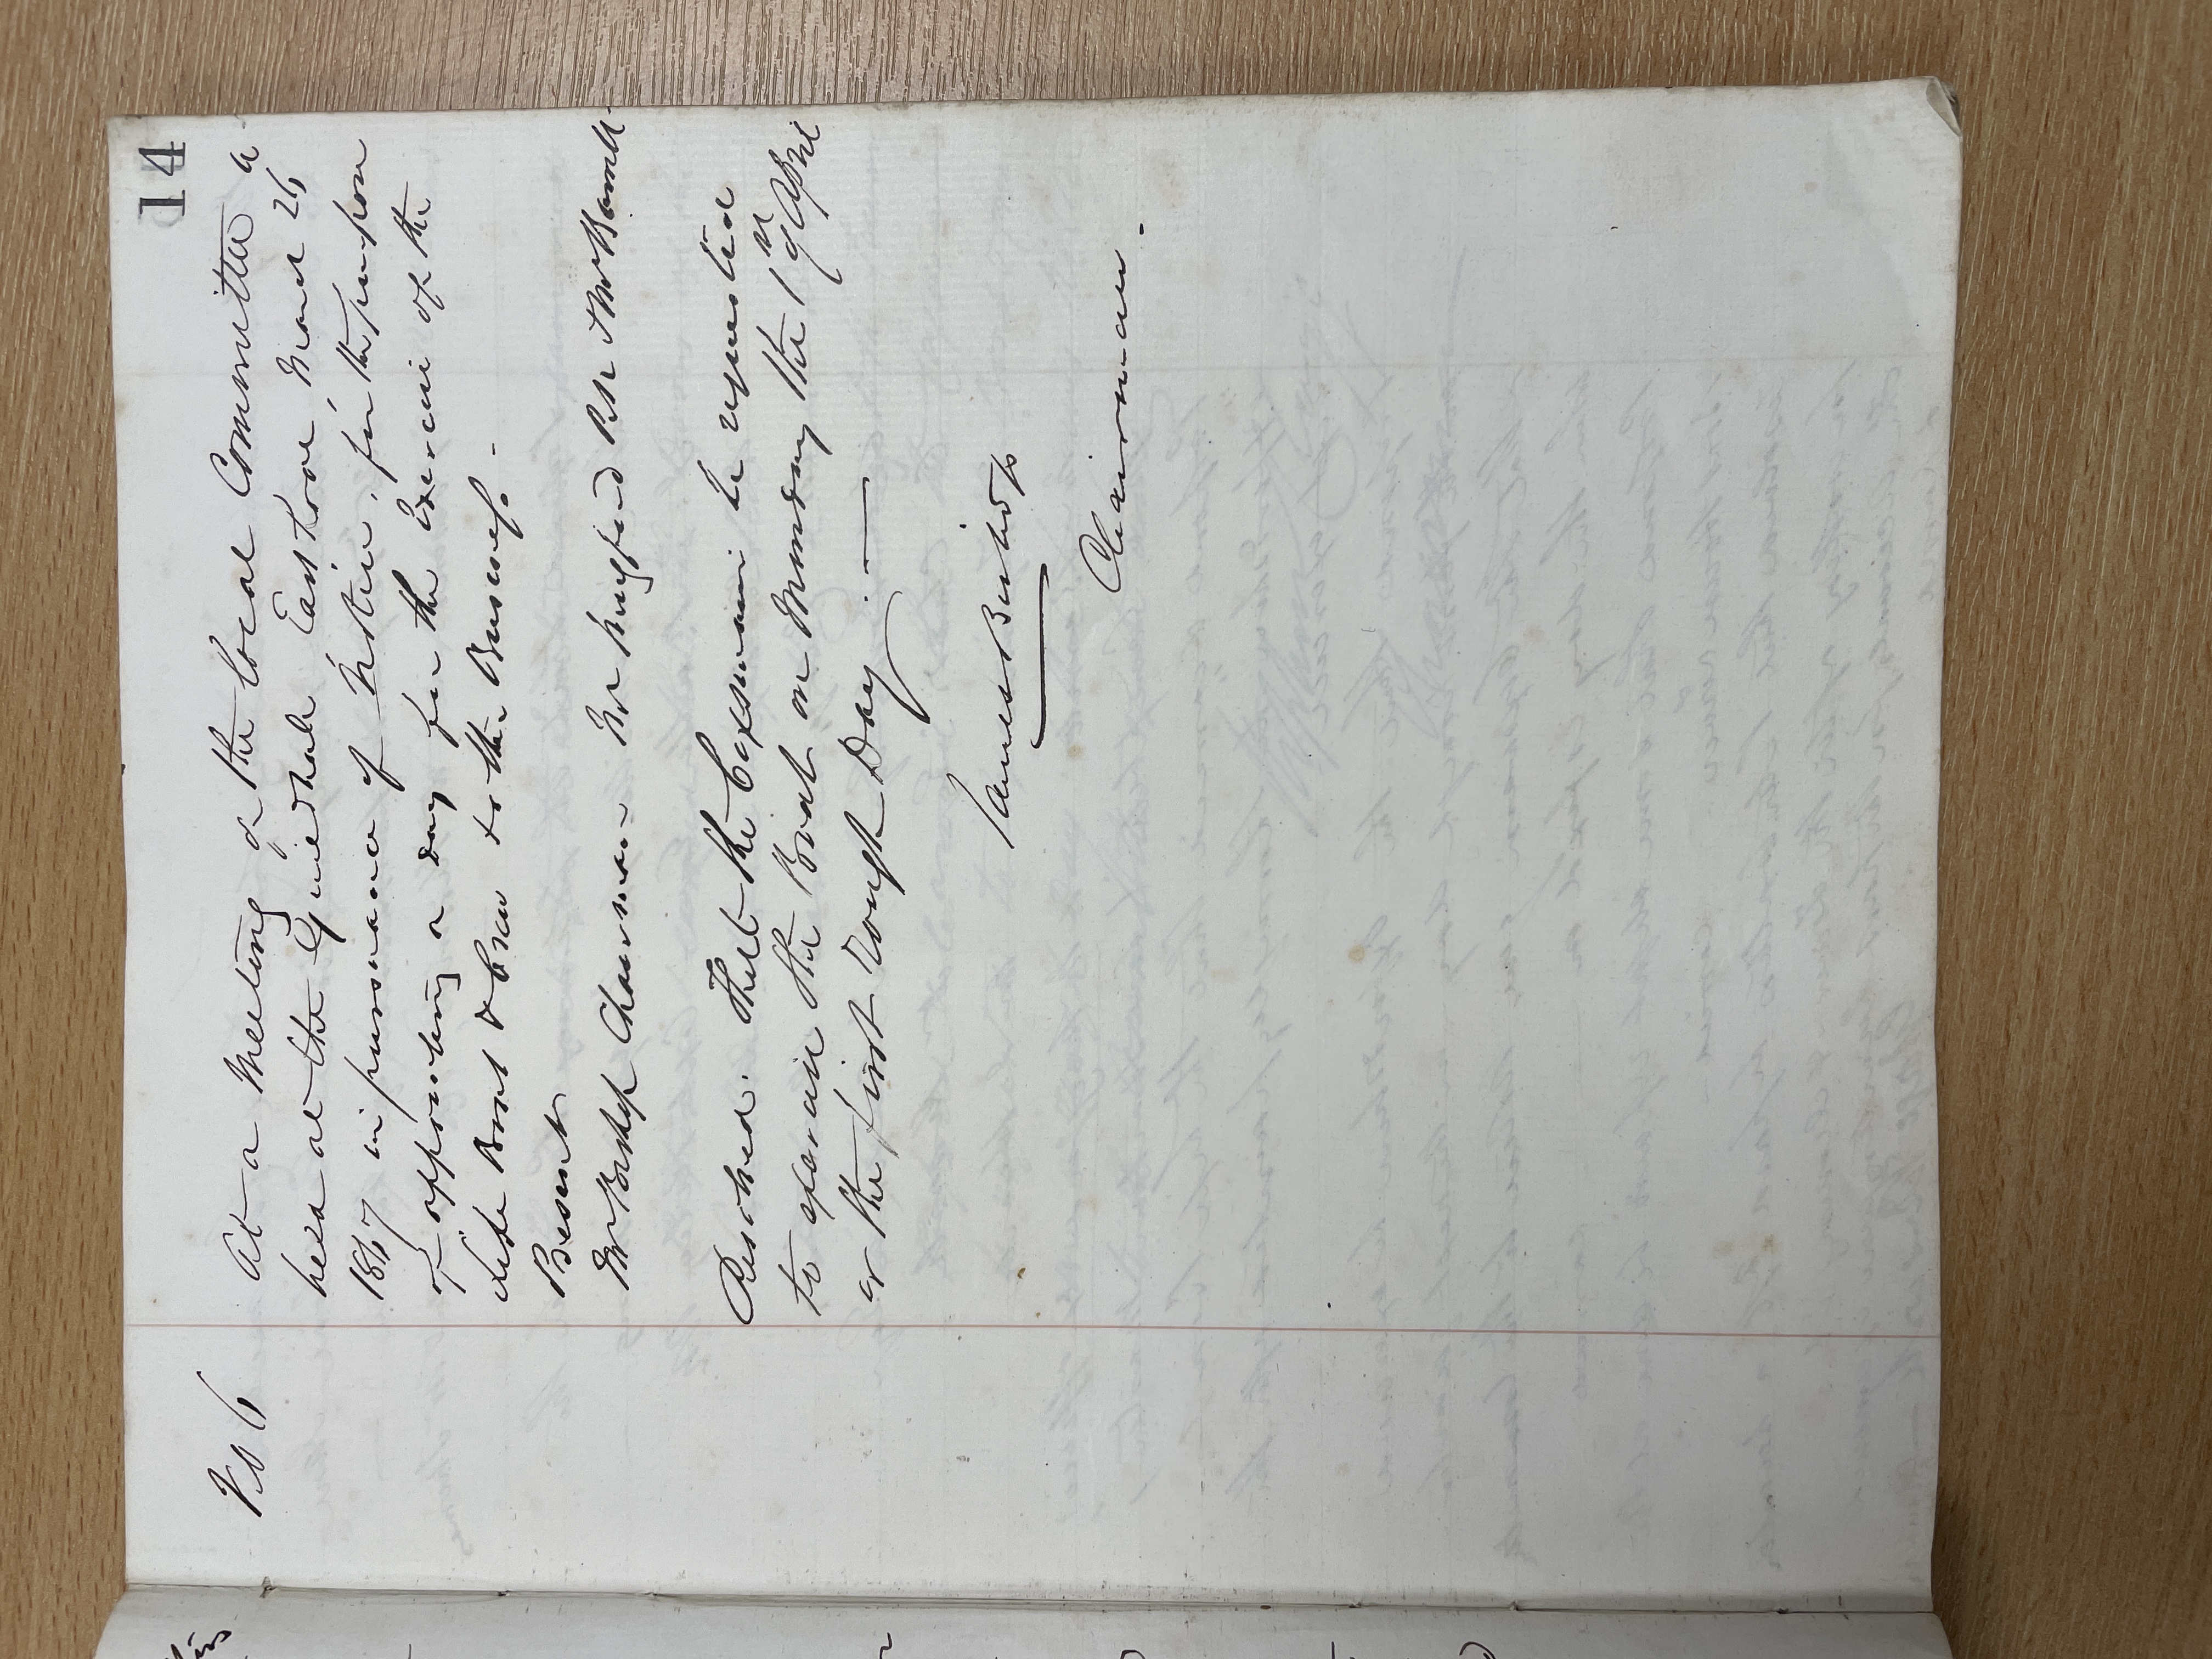 14
No 6
At a Meeting of the Local Committee
held at the Guildhall East Looe March 26
1867 in pursuance of Notice, for the purpose
of appointing a day for the Exercise of the
Life Boat & Crew to the Business.
Present
Mr Bishop Chairman Mr
Resolved. That the Coxswain be requested
to exercise the Boat on Monday the 1st of April
or the first Rough Day.
James Bishop
Chairman.